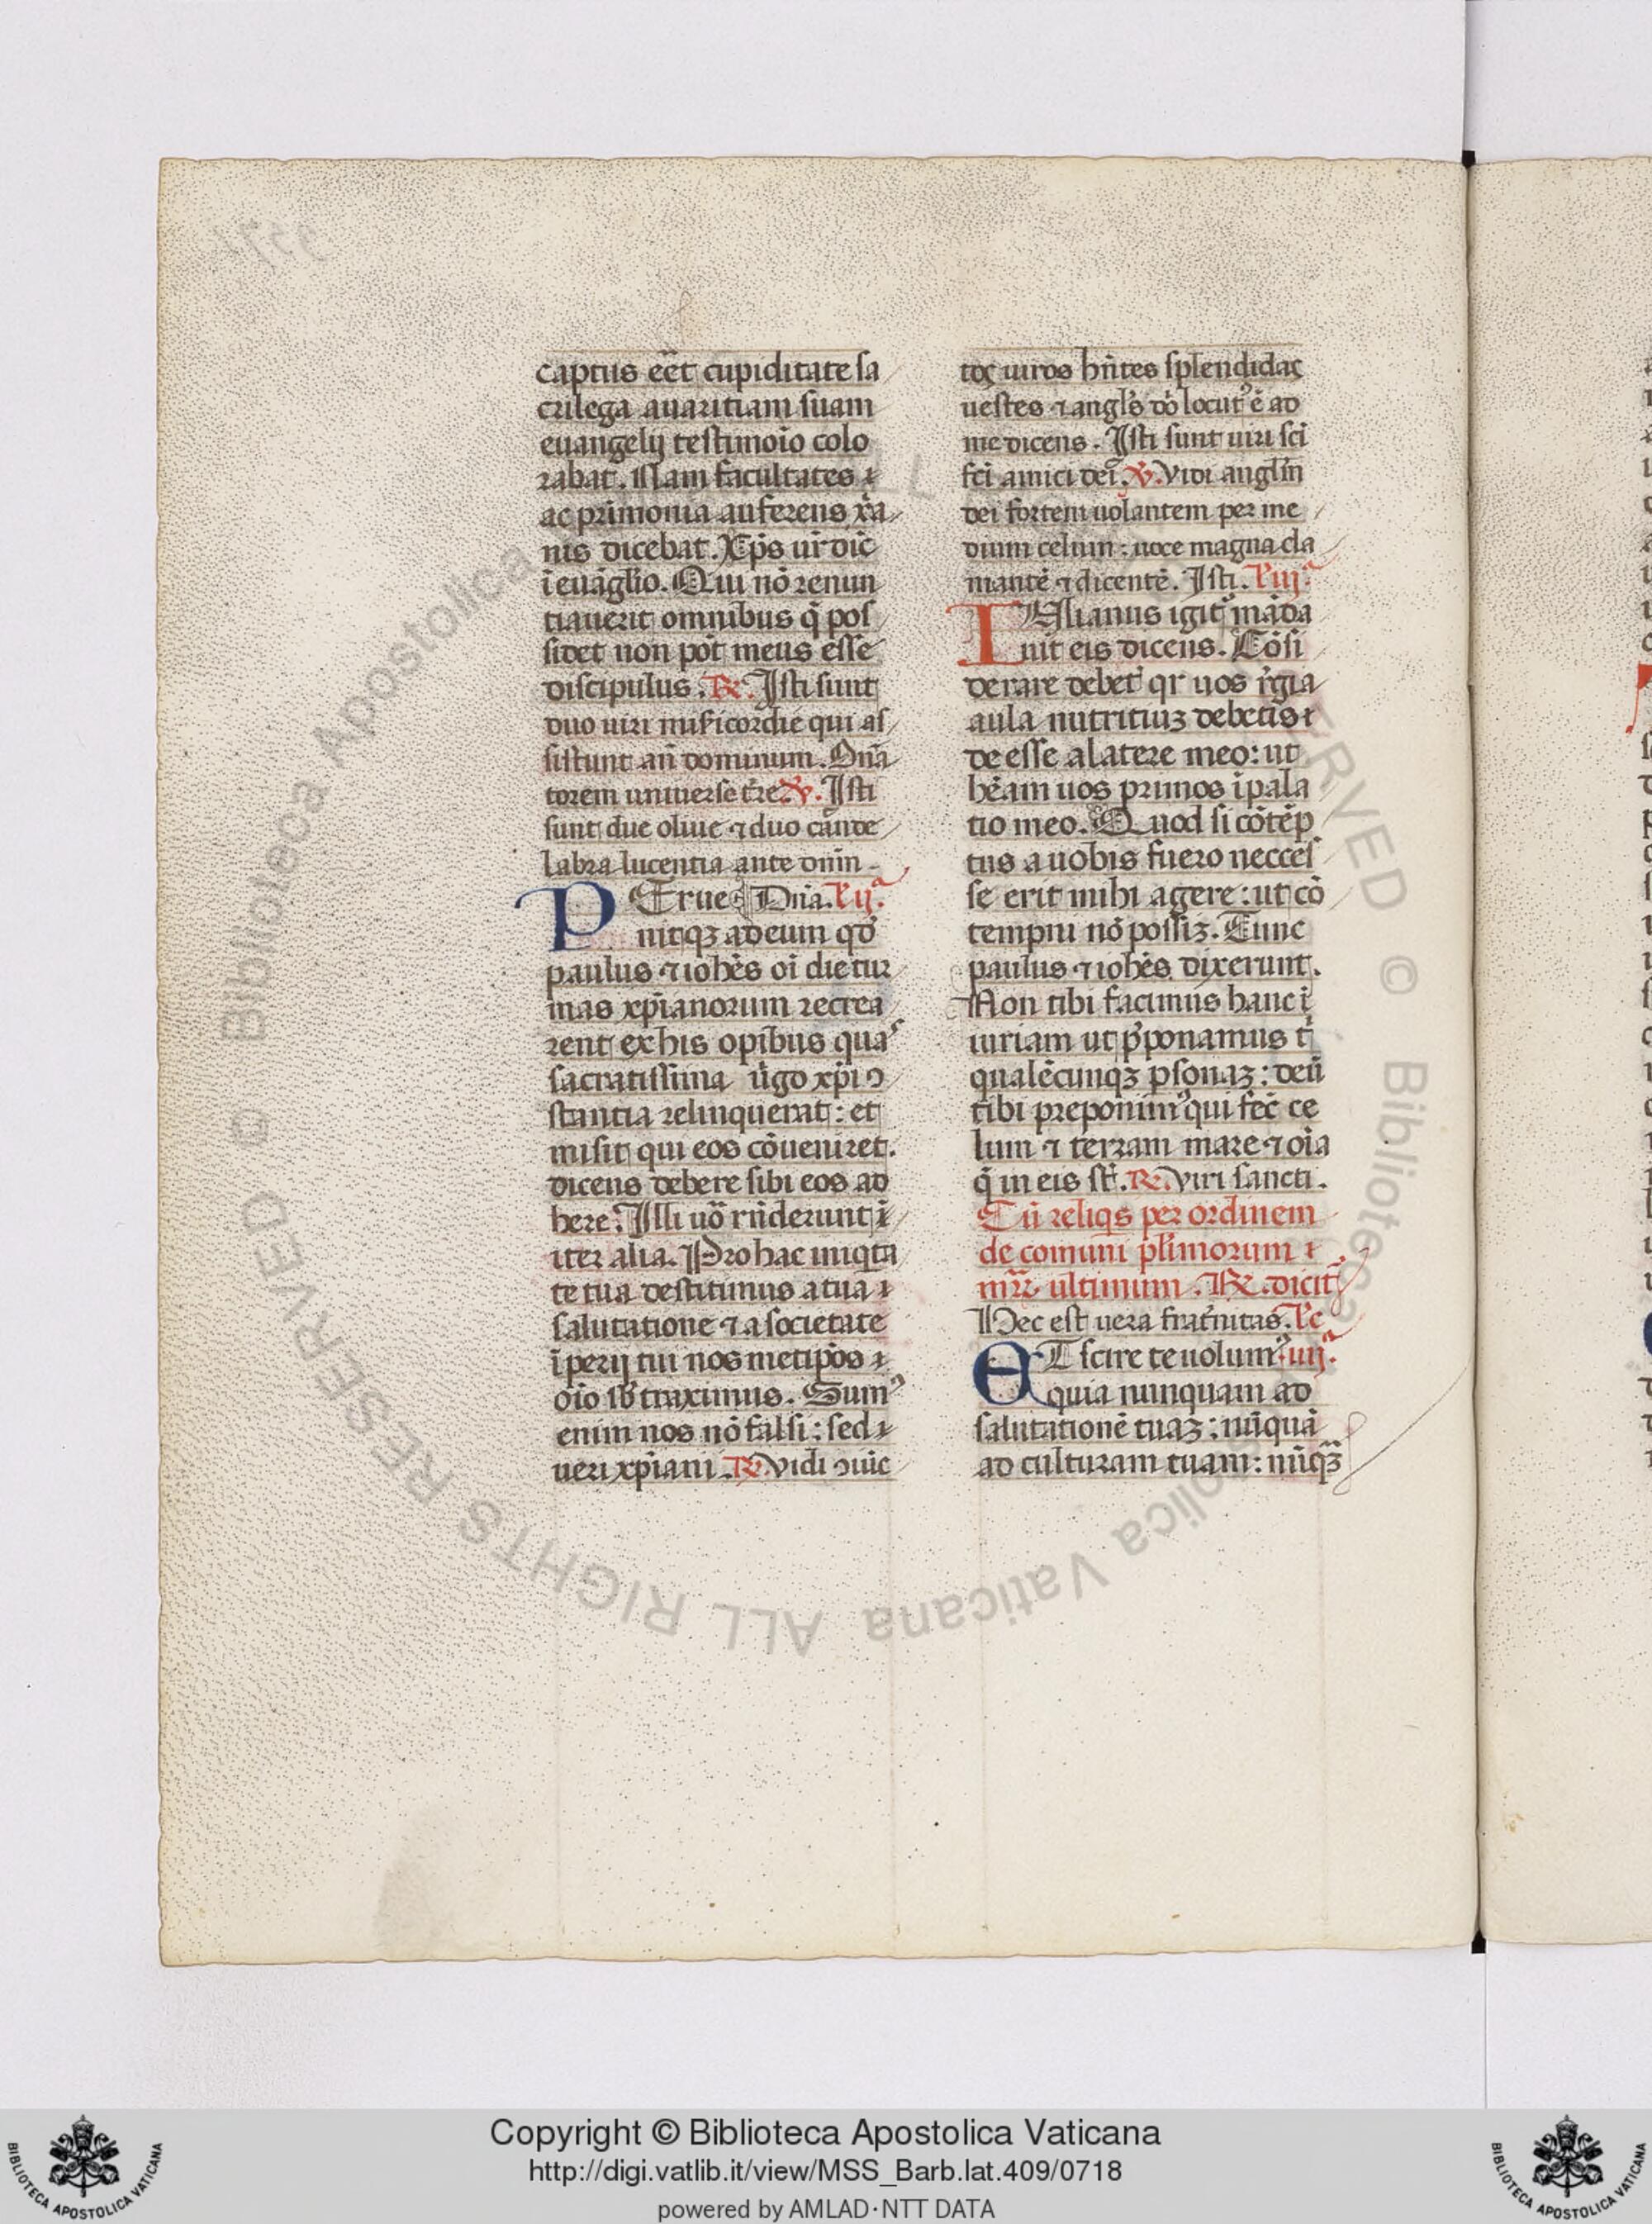 captus eēt cupiditate sa
crilega auaritiam suam
euangelij testimoīo colo
rabat. Nam facultates ⁊
ac pr̄imonia auferens xp̄ia
nis dicebat. Xp̄s ur̄ dic̄
ī euāgl̄io. Qui nō renun
tiauerit omnibus q̄ pos
sidet non pōt meus esse
discipulus. R̄. Isti sunt
duo uiri mīsicordie qui as
sistunt an̄ dominum. Dn̄a
torem uniuerse tr̄re. V̄. Isti
sunt due oliue ⁊ duo cānde
labra lucentia ante dn̄m
PErue Dn̄a. l'ij.ª
nitqꝫ ad eum qd̓
paulus ⁊ iohēs oī die tur
mas xp̄ianorum recrea
rent ex his opibus quas
sacratissima uīgo xp̄i ꝯ
stantia relinquerat: et
misit qui eos cōueniret.
dicens debere sibi eos ad
here. Illi uō rn̄derunt ī
iter alia. Pro hac iniqta
te tua destitimus a tua ⁊
salutatione ⁊ a societate
īperij tui nos metip̄os ⁊
oīo sb̓traximus. Sum᾿
enim nos nō falsi: sed ⁊
ueri xp̄iani. R̄. Vidi ꝯiūc
tos uiros hn̄tes splendidas
uestes ⁊ angl̓s dō locut᾿ ē ad
me dicens. Isti sunt uiri sci
fc̄i amici dei. V̄. Vidi angl̄m
dei fortem uolantem per me
dium celum: uoce magna cla
mantē ⁊ dicentē. Isti. l'iij.ª
IUlianus igit᾿ māda
uit eis dicens. Cōsi
derare debet᾿ qr uos r̓gia
aula nutritiuꝫ debetis ⁊
de esse a latere meo: ut
hēam uos primos ī pala
tio meo. Quod si cōtēp
tus a uobis fuero necces
se erit mihi agere: ut cō
tempni nō possiꝫ. Tunc
paulus ⁊ iohēs dixerunt.
Non tibi facimus hanc ī
iuriam ut p̓ponamus t̓
qualēcunqꝫ psonaꝫ: deū
tibi preponim᾿ qui fec̄ ce
lum ⁊ terram mare ⁊ oīa
q̄ in eis st̄. R̄. Viri sancti.
Cū reliqs per ordinem
de comuni pl̄imorum ⁊
mr̄r̄ ultimum. R̄. dicit᾿
Hec est uera frat̓nitas. l'c
ET scire te uolum᾿ iiij.ª
quia nunquam ad
salutationē tuaꝫ: nūquā
ad culturam tuam: nūqꝫ̄
Copyright © Biblioteca Apostolica Vaticana
http://digi.vatlib.it/view/MSS_Barb.lat.409/0718
powered by AMLAD·NTT DATA
BIBLIOTECA APOSTOLICA VATICANA
BIBLIOTECA APOSTOLICA VATICANA
© Biblioteca Apostolica Vaticana ALL RIGHTS RESERVED